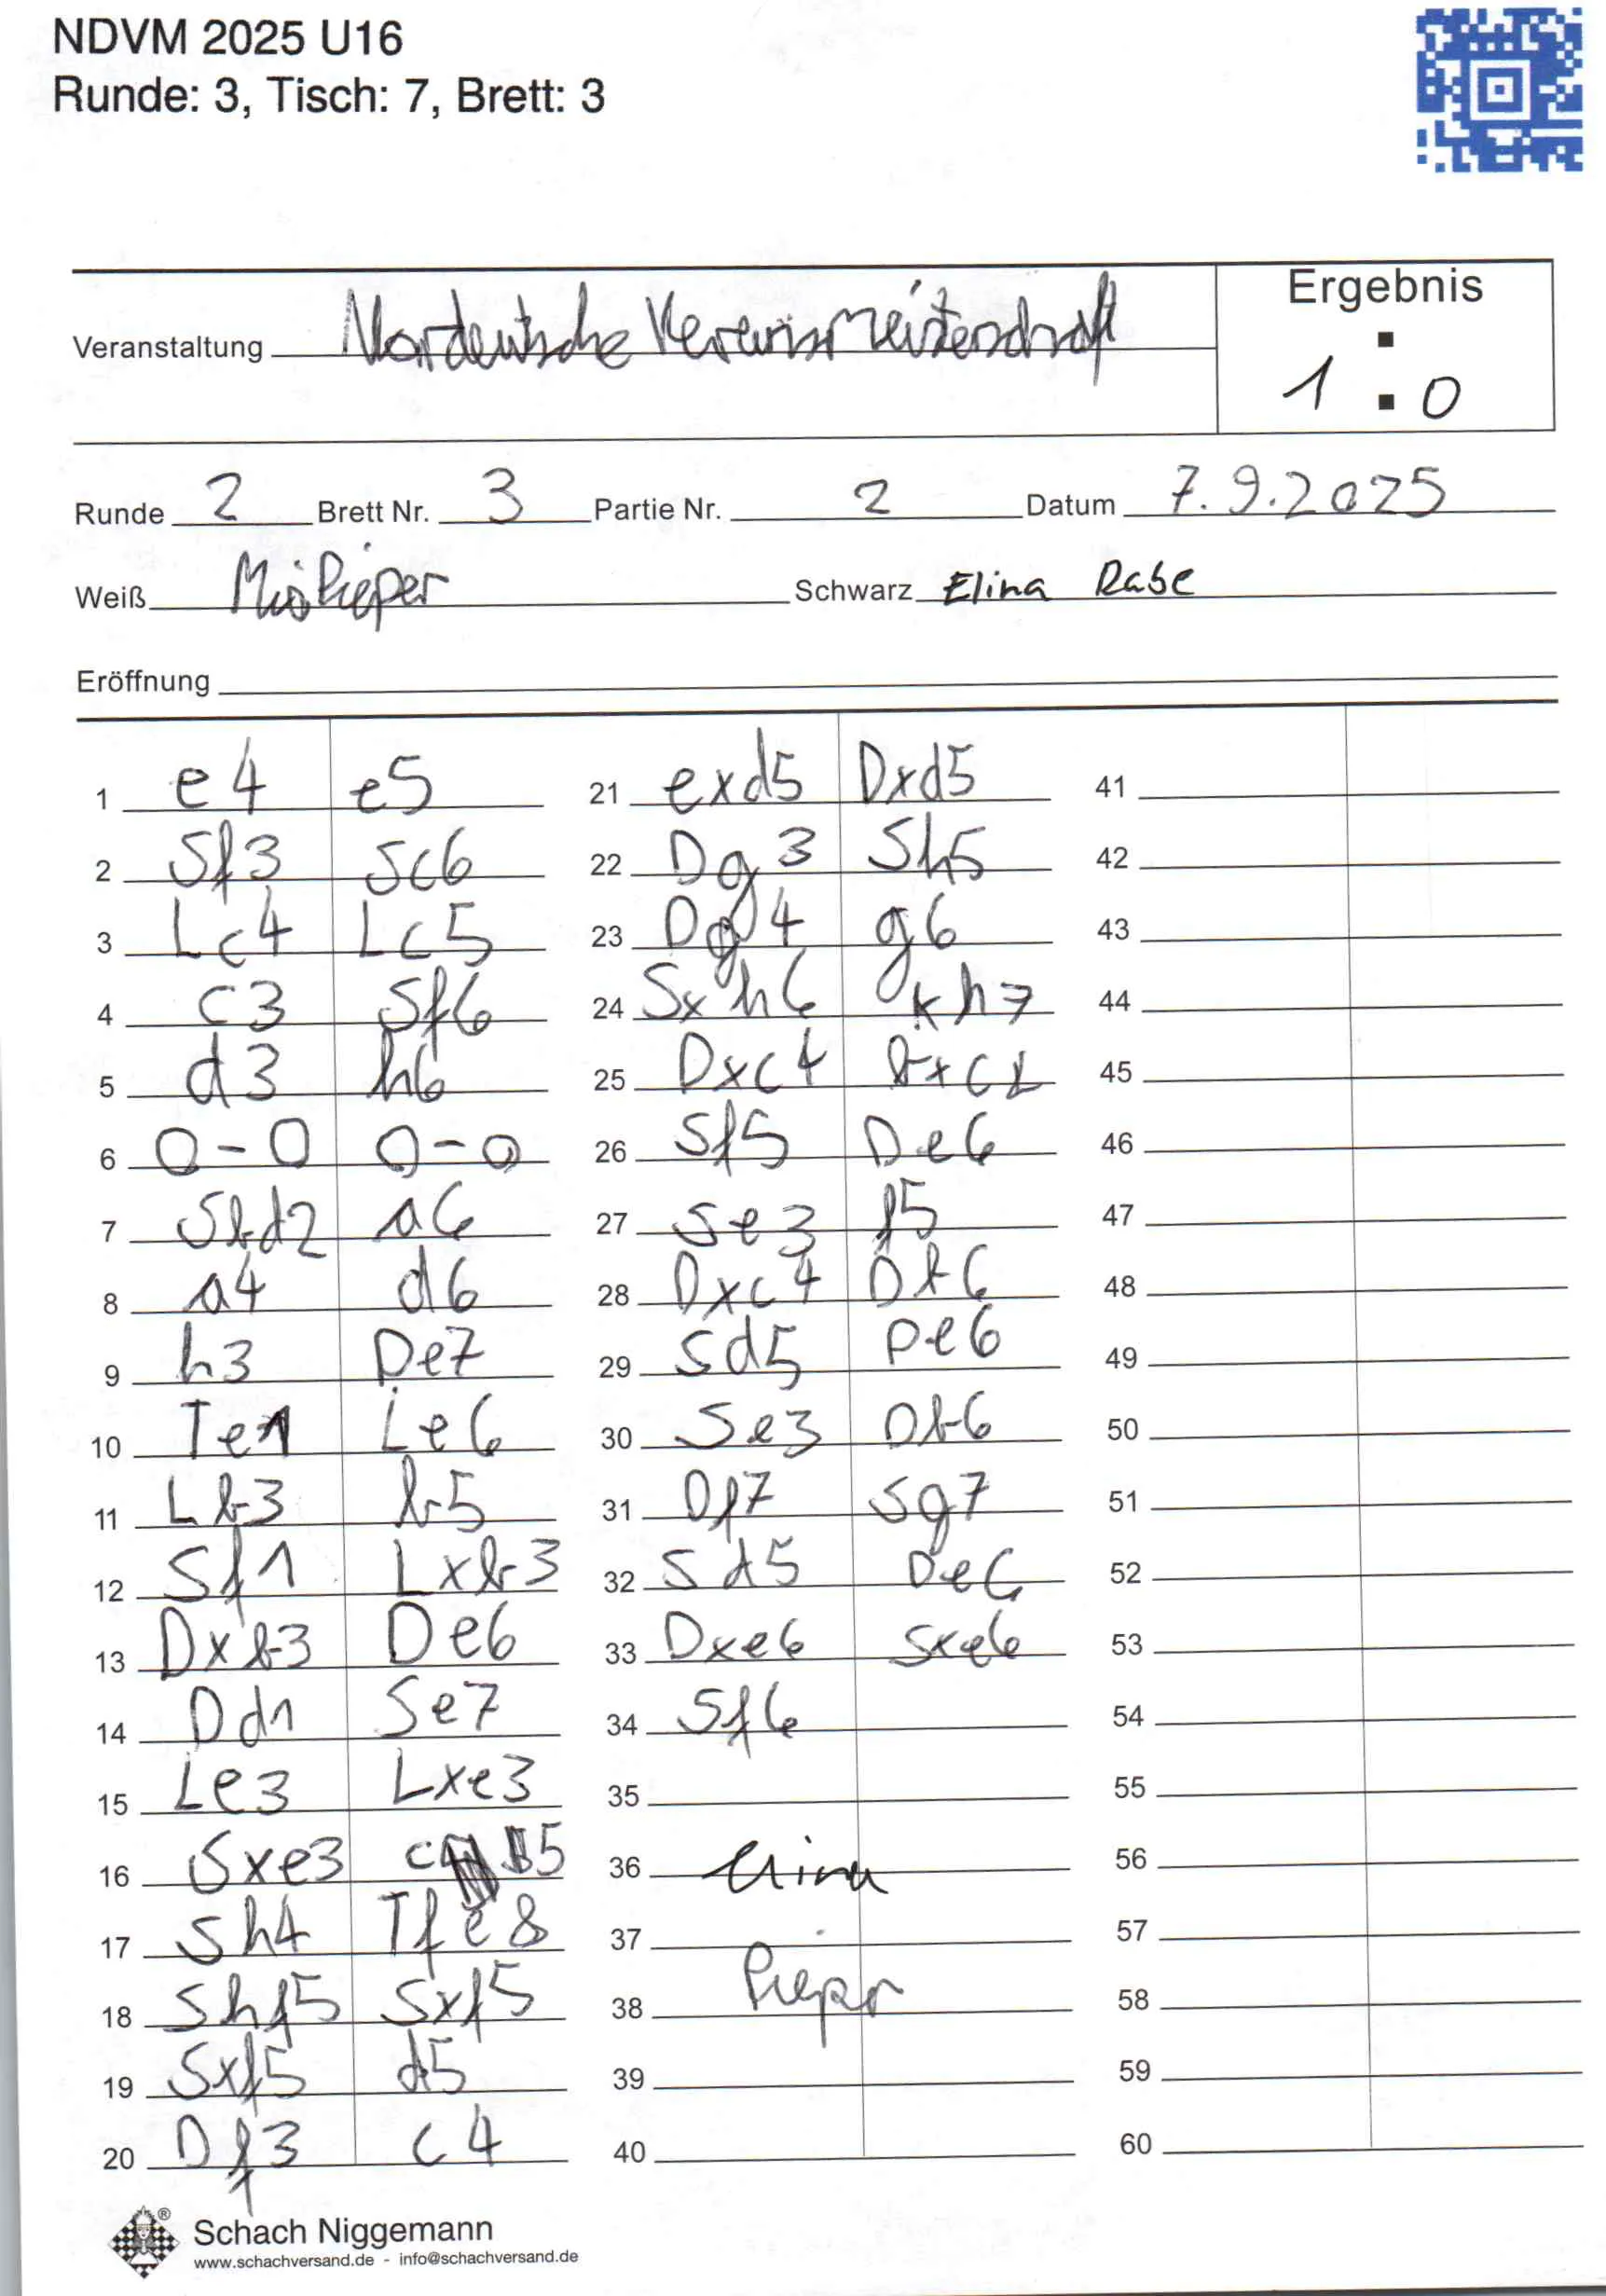 NDVM 2025 U16
Runde: 3, Tisch: 7, Brett: 3
Ergebnis
Veranstaltung Nordeutsche Vereinsmeisterschaft
1 : 0
Runde 2 Brett Nr. 3 Partie Nr. 2 Datum 7.9.2025
Weiß Mia Pieper Schwarz Elina Rabe
Eröffnung
1 e4 e5
2 Sf3 Sc6
3 Lc4 Lc5
4 c3 Sf6
5 d3 h6
6 0-0 0-0
7 Sbd2 a6
8 a4 d6
9 h3 De7
10 Te1 Le6
11 Lb3 b5
12 Sf1 Lxb3
13 Dxb3 De6
14 Dd1 Se7
15 Le3 Lxe3
16 Sxe3 c5
17 Sh4 Tfe8
18 Shf5 Sxf5
19 Sxf5 d5
20 Df3 c4
21 exd5 Dxd5
22 Dg3 Sh5
23 Dg4 g6
24 Sxh6 Kh7
25 Dxc4 bxc4
26 Sf5 De6
27 Se3 f5
28 Dxc4 Db6
29 Sd5 De6
30 Se3 Db6
31 Df7 Sg7
32 Sd5 De6
33 Dxe6 Sxe6
34 Sf6
35
36 Elina
37
38 Pieper
39
40
41
42
43
44
45
46
47
48
49
50
51
52
53
54
55
56
57
58
59
60
Schach Niggemann
www.schachversand.de - info@schachversand.de